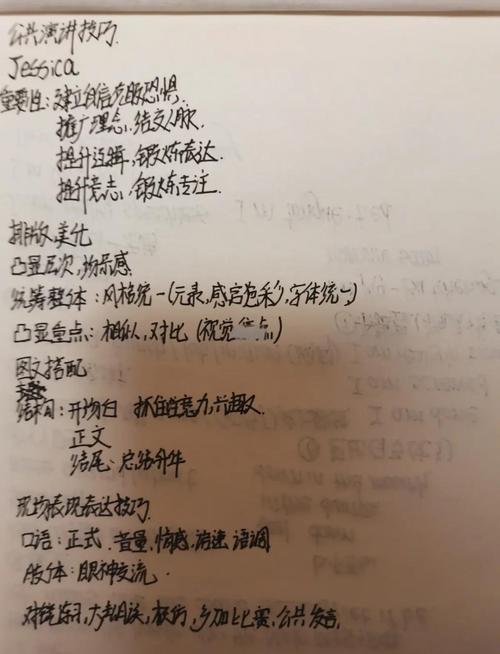 公共演讲技巧.
Jessica
重要性：建立自信克服恐惧.
推广理念,结交人脉.
提升逻辑,锻炼表达.
提升意志,锻炼专注.
排版,美化
凸显层次,场景感
统筹整体：风格统一(元素,感官色彩,字体统一)
凸显重点：相似,对比(视觉焦点)
图文搭配
结构：开场白 抓住注意力,有趣.
正文
结尾：总结升华
现场表现表达技巧.
口语：正式.音量,情感,语速 语调
肢体：眼神交流.
对镜练习,大声朗读,模仿,多加比赛,公共发言.